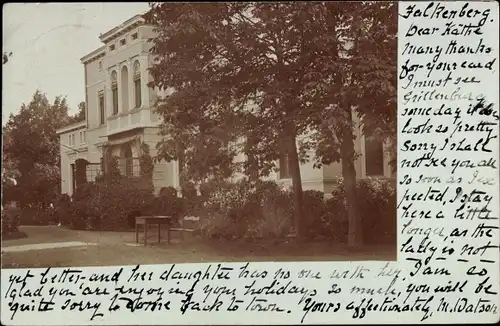 Falkenberg.
Dear Käthe
Many thanks
for your card
I must see
Grillenburg
someday it does
look so pretty
Sorry I shall
not see you all
so soon as I ex
pected, I stay
here a little
longer, as the
lady is not
yet better - and her daughter has no one with her, I am so
glad you are enjoying your holidays so much, you will be
quite sorry to come back to town. Yours affectionately, M. Watson.